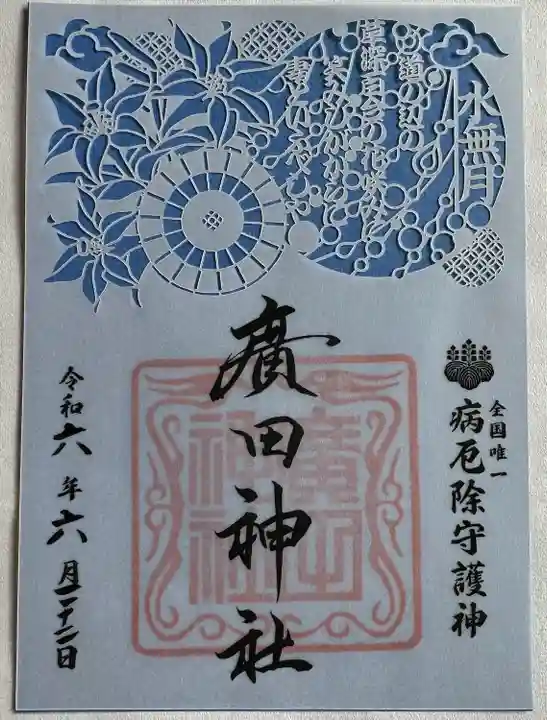 水無月
道の辺の
草深百合の花咲みに
笑みしがからに
妻と言ふべしや
全国唯一
病厄除守護神
廣田神社
廣田
神社
令和六年六月二十二日